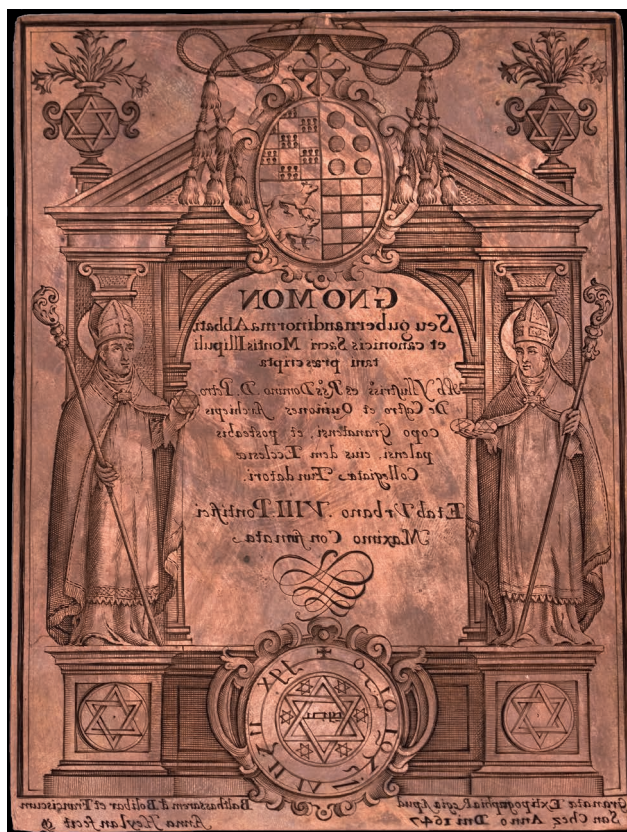 GNOMON
Seu gubernandi norma Abbati,
et canonicis Sacri Montis Illipuli
tani præscripta
Ab Yllustriss. et R. Domino. D. Petro
De Castro et Quinones Archiepis
copo Granatensi, et postea his
palensi, eius dem Ecclesiæ
Collegiatæ Fundatori.
Et ab Vrbano .VIII. Pontifici
Maximo Confirmata
Granatæ Ex tipographia Regia Apud Balthassarem d Bolibar et Franciscum
San Chez Anno Dni 1647 Anna Heylan fecit